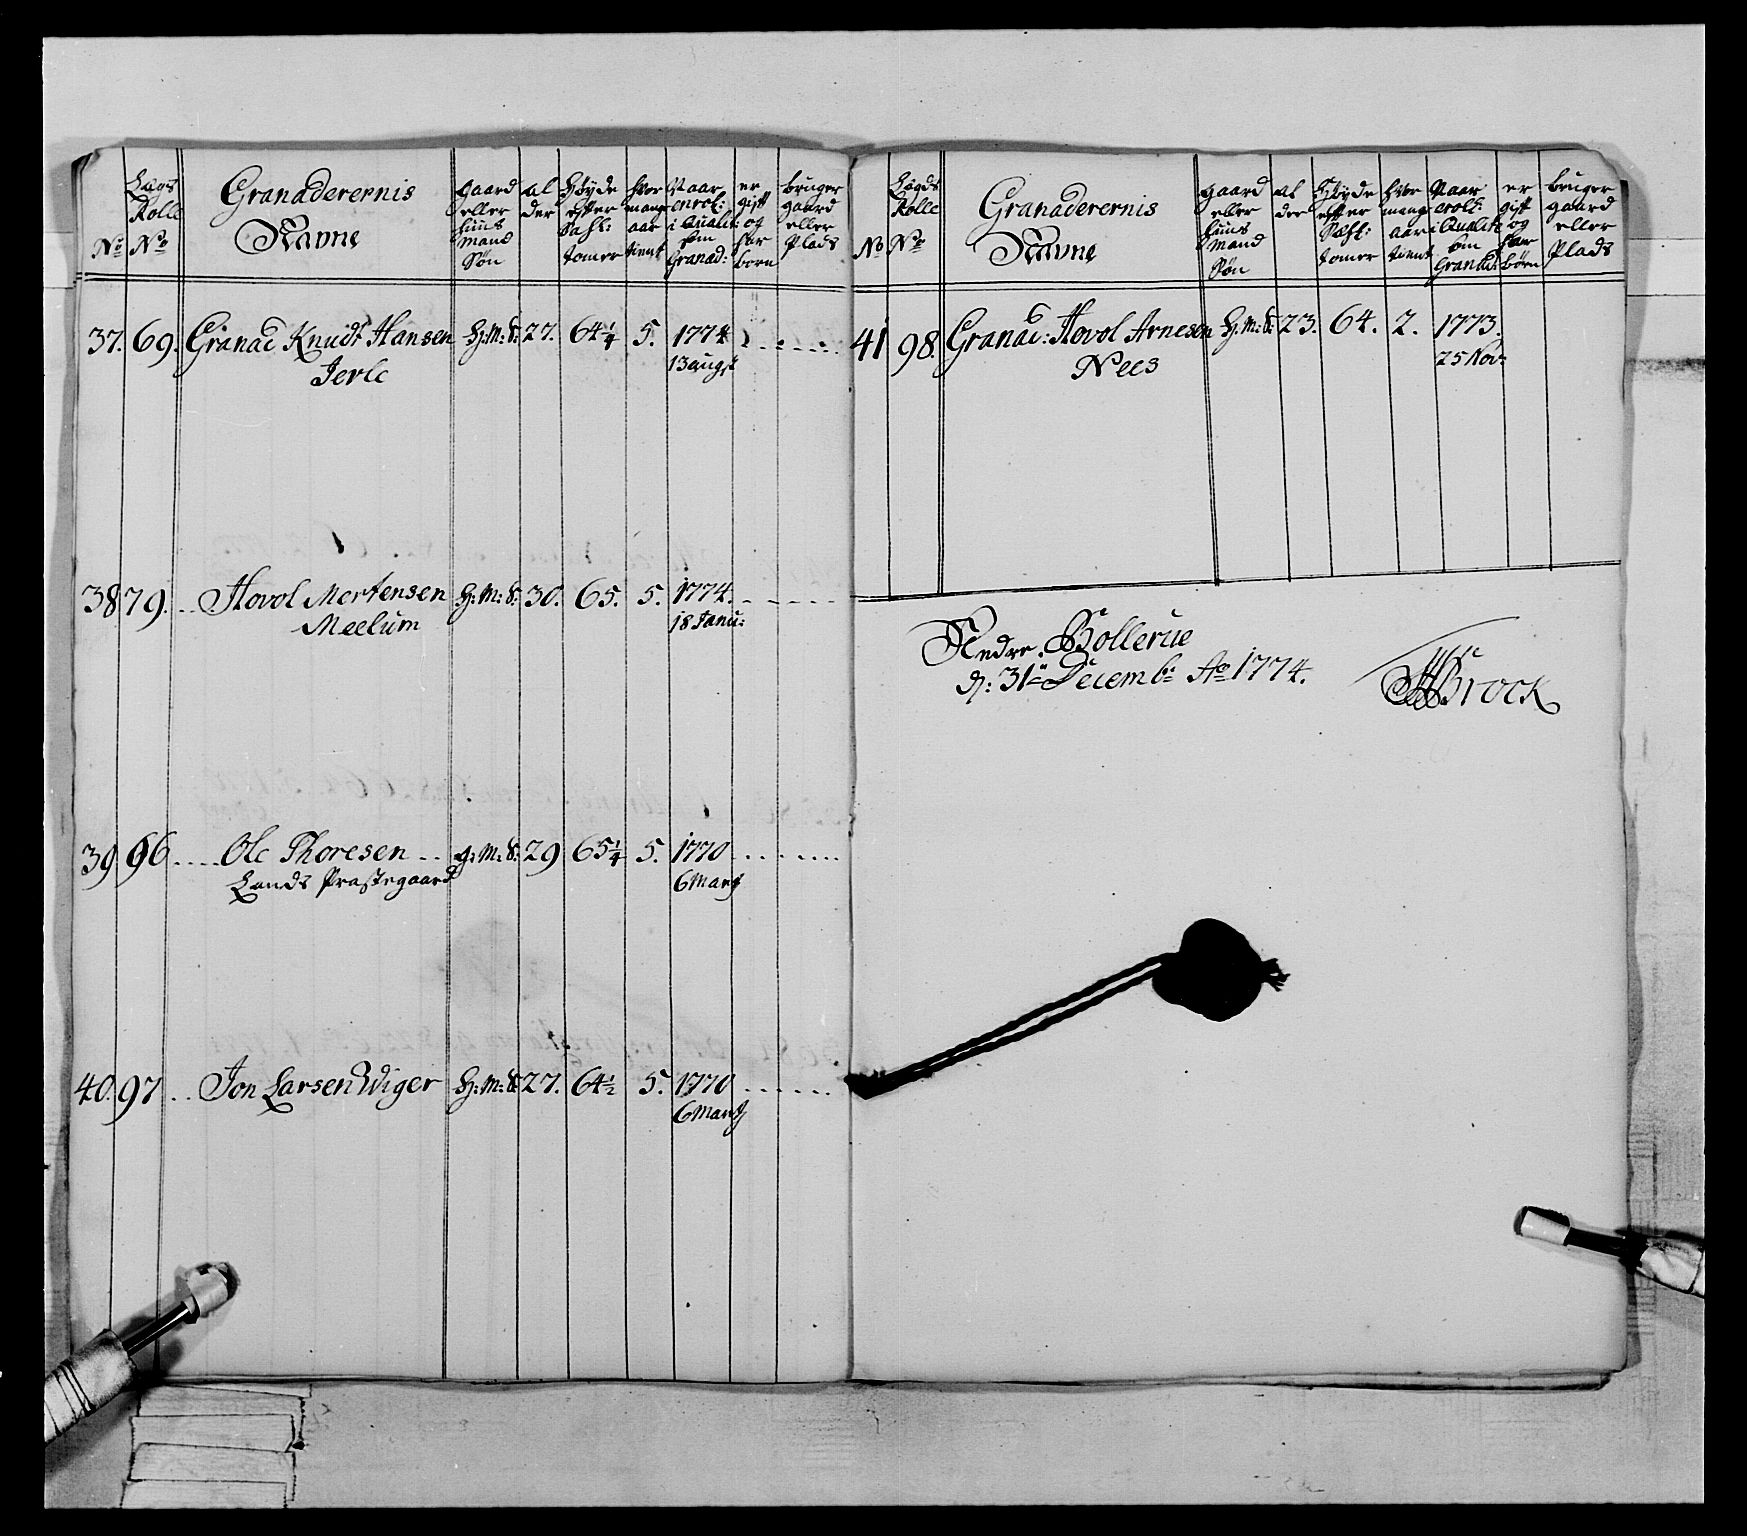 No
Lægs Rolle No
Granaderernis Navne
gaard eller huus Mand Søn
al der
Høyde efter Sæht: tomer
hvor mange aar tient
Naar enrol: i Qualit: som Granad:
er gift og har børn
bruger gaard eller Plads
37. 69. Granad Knudt Hansen H: M: S: 27. 64¼ 5. 1774
Jerle 13 augst
38 79. Hovol Mortensen H: M: S: 30. 65. 5. 1774.
Meelum 18 Janu:
39 96 Ole Thoresen g: M: S: 29 65¼ 5. 1770
Lands Præstegaard 6 Martj
40. 97 Jon Larsen Wiger H: M: S: 27. 64½ 5. 1770
6 Martj
No
Lægds Rolle No
Granaderernis Navne
gaard eller huus Mand Søn
al der
Høyde efter Sæht: tomer
hvor mang aar tient
Naar enroll: i Qualit: som Granad:
er gift og har børn
bruger gaard eller Plads
41 98. Granad: Hovol Arnesen H: M: S: 23. 64. 2. 1773.
Nees 25 Nov:
Nedre Bollerue
d: 31te Decemb: Ao 1774.
Brock